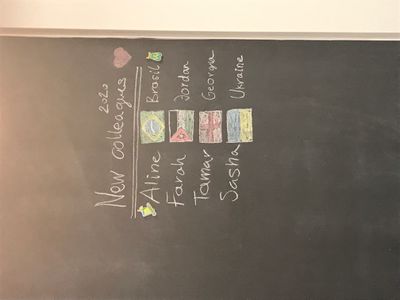 New colleagues
2020
Aline Brasil
Farah Jordan
Tamar Georgia
Sasha Ukraine